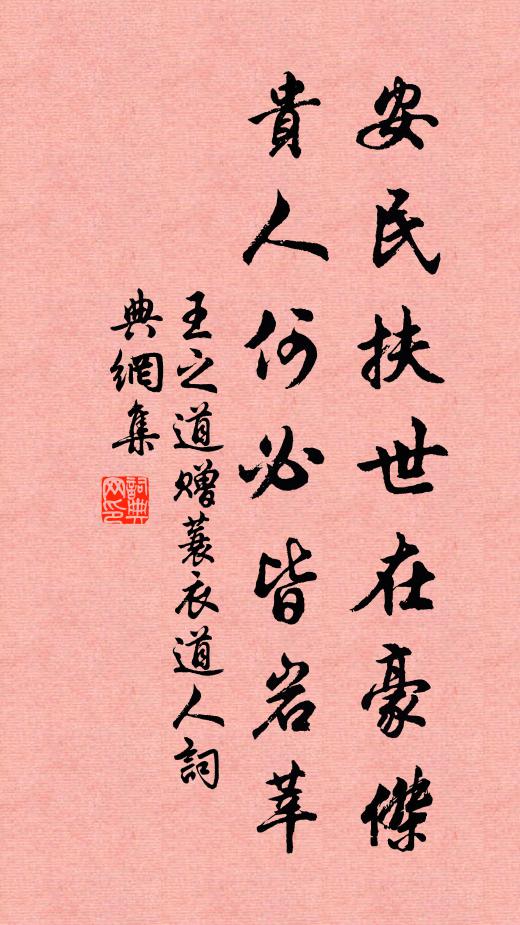 安民扶世在豪傑
貴人何必皆岩莘
王之道赠蓑衣道人詞
典網集
詞典
网印